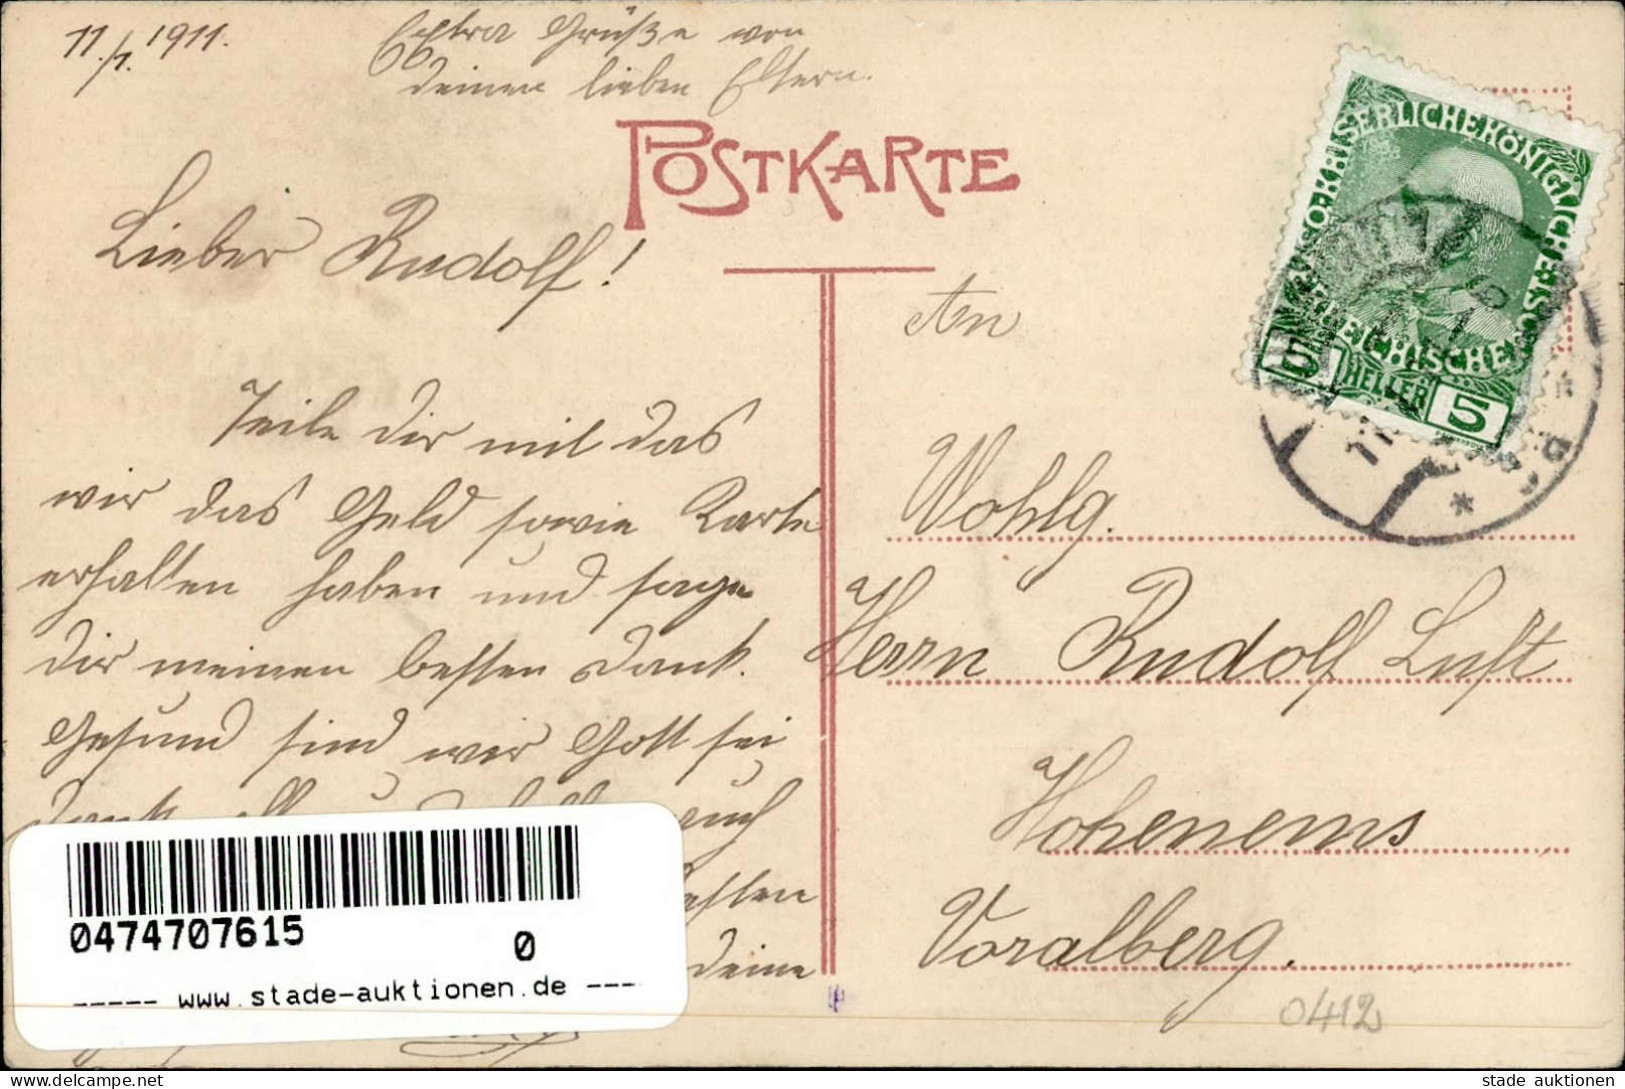 11./1. 1911.
Extra Grüße von
deinen lieben Eltern.
POSTKARTE
Lieber Rudolf!
Teile dir mit das
wir das Geld sowie Karte
erhalten haben und sage
dir meinen besten Dank.
Gesund sind wir Gott sei
Dank auch
besten
deine
An
Wohlg.
Herrn Rudolf Luft
Hohenems
Voralberg.
0412
KAISERLICHE KÖNIGLICHE
ÖSTERREICHISCHE
5 HELLER 5
11
0474707615
0
----- www.stade-auktionen.de ---
delcampe.net
stade auktionen